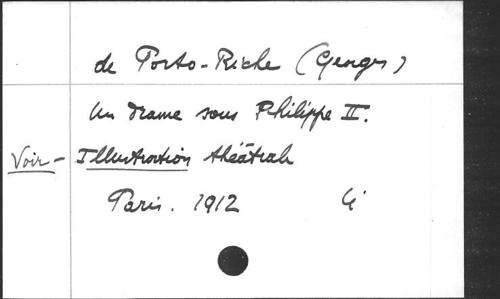 de Porto-Riche (Georges)
Un drame sous Philippe II.
Voir - Illustration théâtrale
Paris. 1912